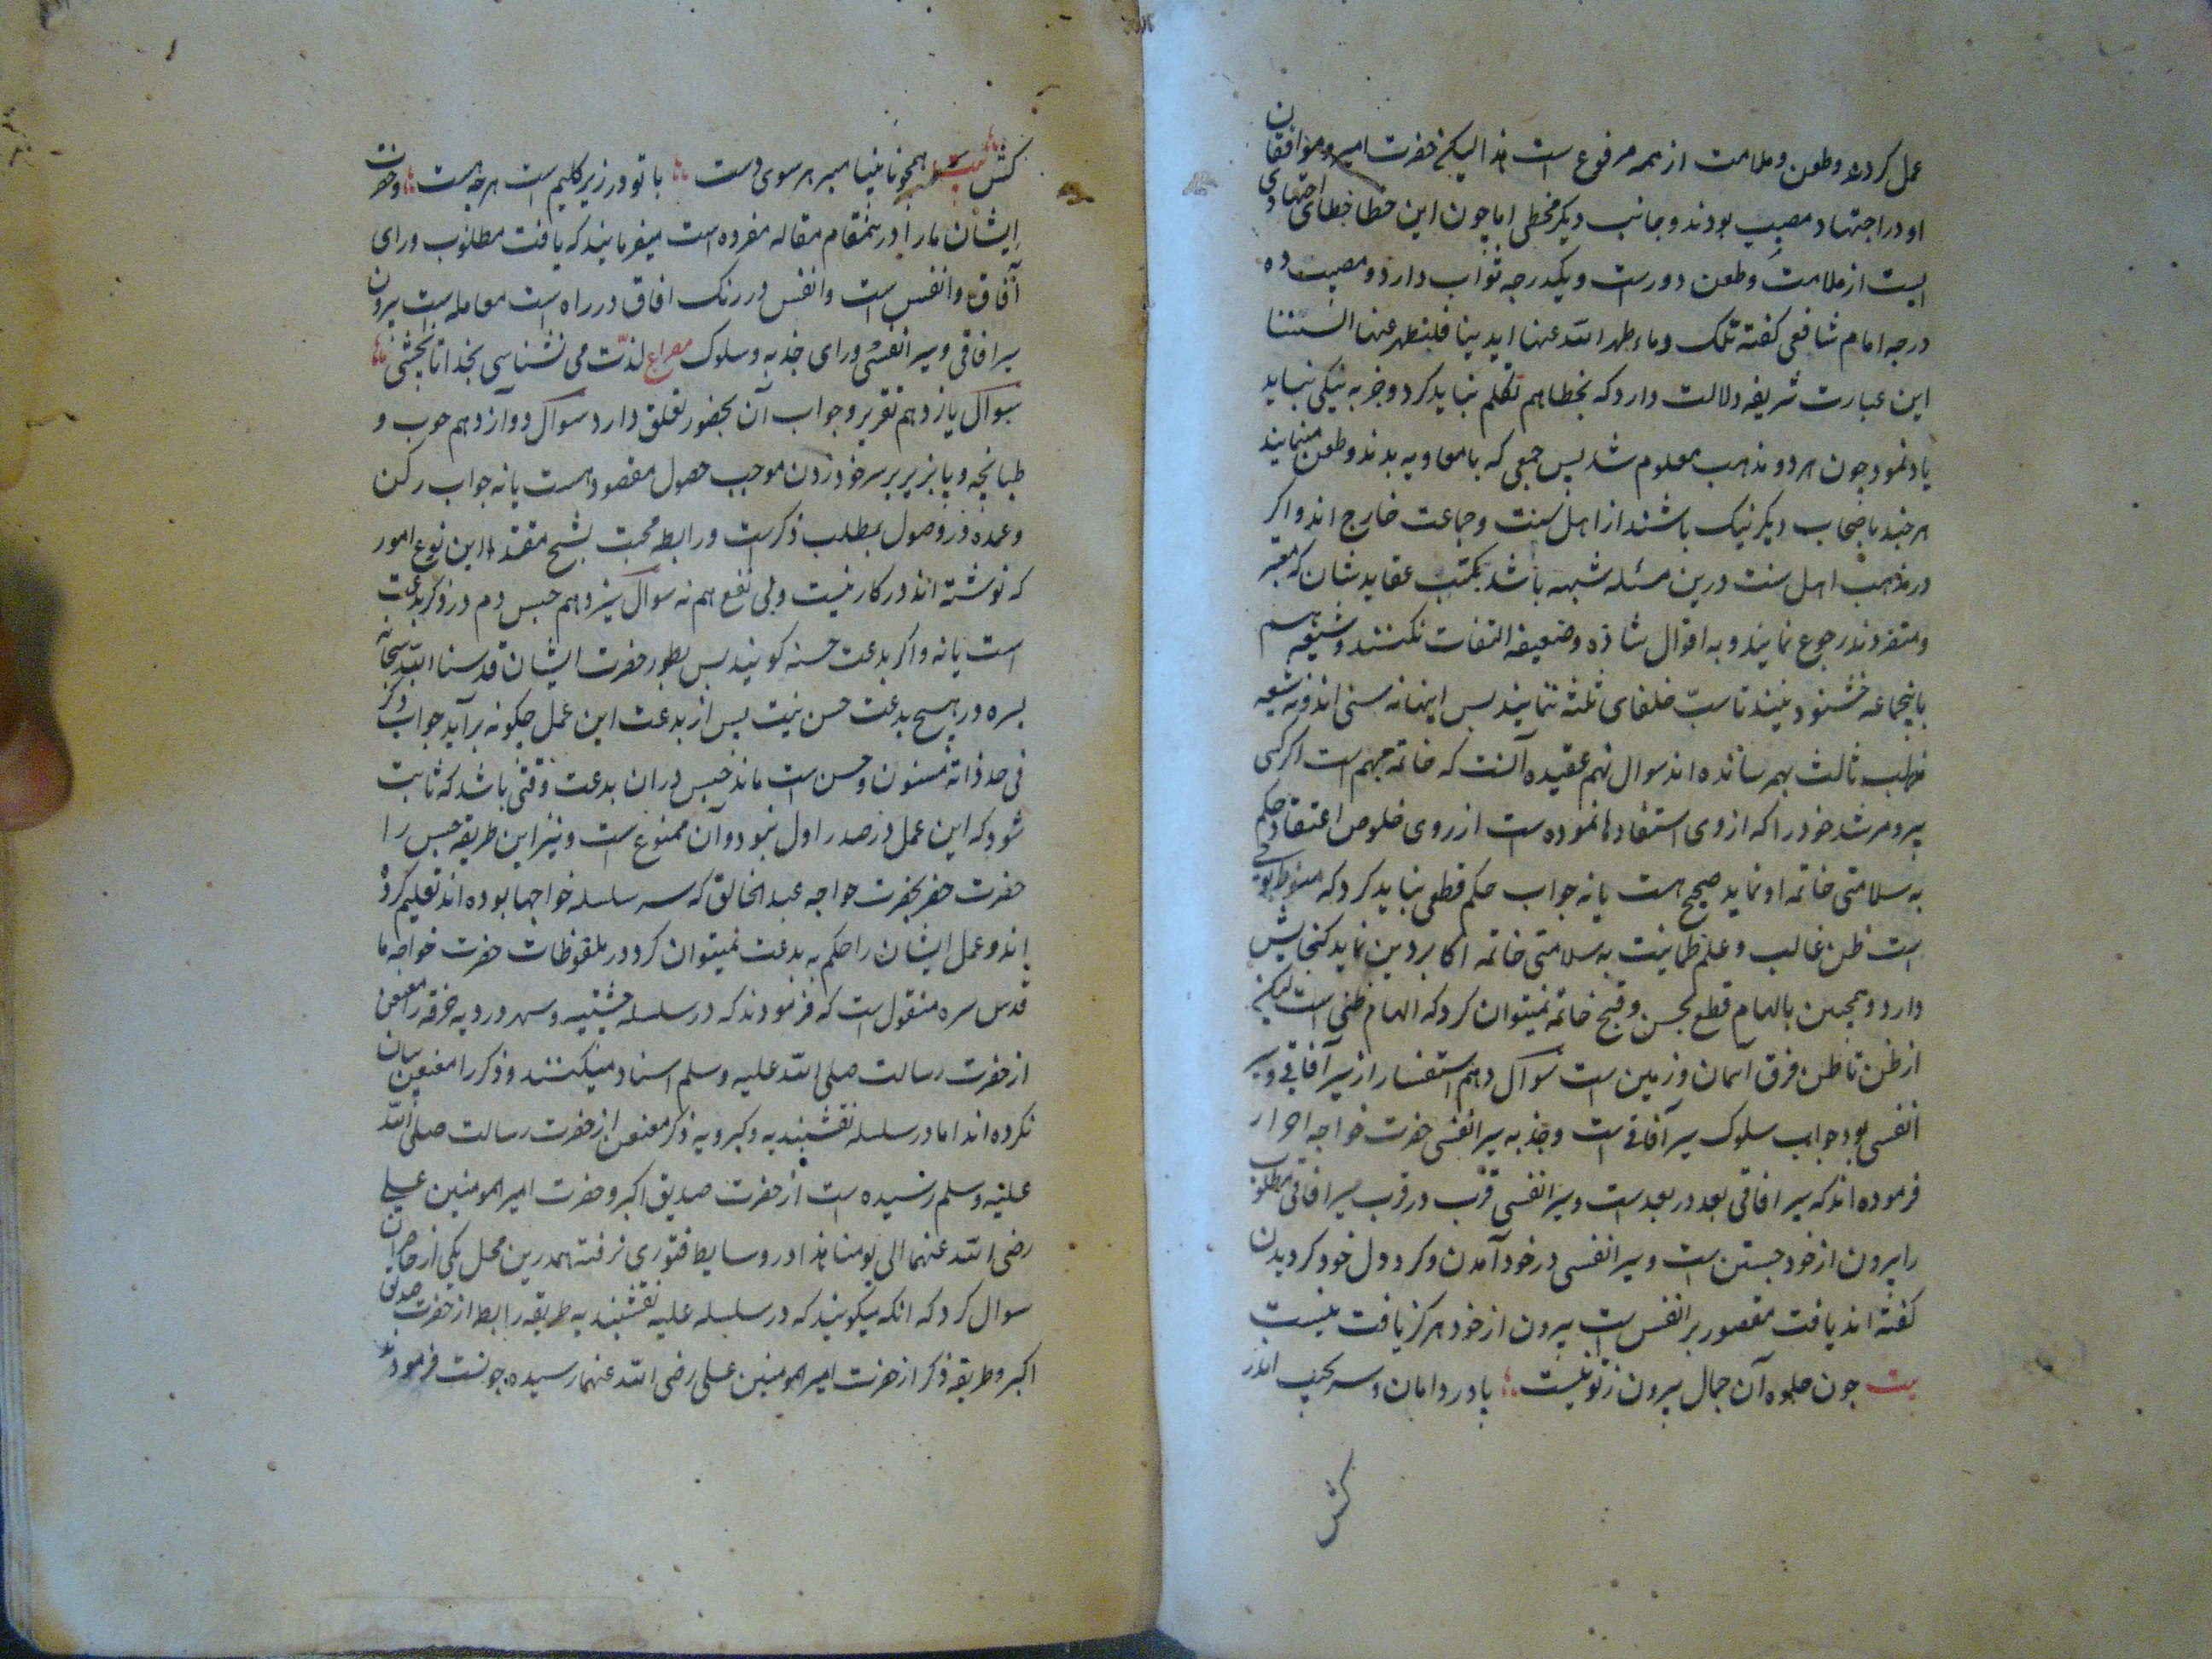 عمل کرده و طعن و ملامت از همه مرفوع است هذا لیکن حضرت امیر و موافقان
او در اجتهاد مصیب بودند و جانب دیگر مخطی اما چون این خطا خطای اجتهادی
ایست از ملامت و طعن دورست و یکدرجه ثواب دارد و مصیب ده
درجه امام شافعی کفته تلک دماء طهر الله عنها ایدینا فلنطهر عنها السنتنا
این عبارت شریفه دلالت دارد که بخطا هم تکلم نباید کرد و خبر به نیکی نباید
یاد نمود چون هر دو مذهب معلوم شد پس جمعی که با معاویه بدند و طعن مینمایند
هر چند باصحاب دیکر نیک باشند از اهل سنت و جماعت خارج اند و اکر
در مذهب اهل سنت درین مسئله شبهه باشد بکتب عقاید شان که معتبر
و متفردند رجوع نمایند و به اقوال شاذه و ضعیفه التفات نکنند و شیعه هم
باینجماعه خشنود نیند تا سبّ خلفای ثلثه ننمایند پس اینها نه سنی اند و نه شیعه
مذهب ثالث بهم رسانده اند سوال نهم عقیده آنست که خاتمه مبهم است اکر کسی
پیر و مرشد خود را که از وی استفاده نموده است از روی خلوص اعتقاد حکم
به سلامتی خاتمه او نماید صحیح است یا نه جواب حکم قطعی نباید کرد که منوط بوحی
است ظن غالب و علم طمانینت به سلامتی خاتمه اکابر دین نماید کنجایش
دارد و همچنین بالهام قطع بحسن و قبح خاتمه نمیتوان کرد که الهام ظنی است لیکن
از ظن تا ظن فرق آسمان و زمین است سوال دهم استفسار از سیر آفاقی و سیر
انفسی بود جواب سلوک سیر آفاقی است و جذبه سیر انفسی حضرت خواجه احرار
فرموده اند که سیر افاقی بعد در بعد است و سیر انفسی قرب در قرب سیر افاقی مطلوب
را بیرون از خود جستن است و سیر انفسی در خود آمدن و کرد دل خود کردیدن
کفته اند یافت مقصور بر انفس است بیرون از خود هرکز یافت نیست
بیت چون جلوه آن جمال بیرون ز تو نیست پا در دامان و سر بجیب اندر
کش
کش بیت همچو نابینا مبر هر سوی دست با تو در زیر کلیم است هر چه هست و حضرت
ایشان ما را درینمقام مقاله مفرده است میفرمایند که یافت مطلوب ورای
آفاق و انفس است و انفس در رنک افاق در راه است معامله است بیرون
سیر افاقی و سیر انفسی ورای جذبه و سلوک مصراع لذّت می نشناسی بخدا تا نچشی
سوال یازدهم تقریر و جواب آن بحضور تعلق دارد سوال دوازدهم چوب و
طبانچه و پابزیر بر سر خود زدن موجب حصول مقصود هست یا نه جواب رکن
و عمده در وصول بمطلب ذکر ست و رابطه محبت بشیخ مقتدا این نوع امور
که نوشته اند در کار نیست و بی نفع هم نه سوال سیزدهم حبس دم در ذکر بدعت
است یا نه و اکر بدعت حسنه کویند پس بطور حضرت ایشان قدسنا الله سبحانه
بسره در هیچ بدعت حسن نیست پس از بدعت این عمل چکونه برآید جواب ذکر
فی حد ذاته مسنون و حسن ست ماند حبس در ان بدعت وقتی باشد که ثابت
شود که این عمل در صدر اول نبود و آن ممنوع ست و نیز این طریقه حبس را
حضرت خضر بحضرت خواجه عبد الخالق که سر سلسله خواجها بوده اند تعلیم کرده
اند و عمل ایشان را حکم به بدعت نمیتوان کرد در ملفوظات حضرت خواجه ما
قدس سره منقول است که فرمودند که در سلسله چشتیه و سهروردیه خرقه را معنعن
از حضرت رسالت صلی الله علیه و سلم اسناد میکنند و ذکر را معنعن بیان
نکرده اند اما در سلسله نقشبندیه و کبرویه ذکر معنعن از حضرت رسالت صلی الله
علیه و سلم رسیده ست از حضرت صدیق اکبر و حضرت امیر المومنین علی
رضی الله عنهما الی یومنا هذا در وسایط فتوری نرفته همدرین محل یکی از حاضران
سوال کرد که انکه میکویند که در سلسله علیه نقشبندیه طریقه رابطه از حضرت صدیق
اکبر و طریقه ذکر از حضرت امیر المومنین علی رضی الله عنهما رسیده چونست فرمودند